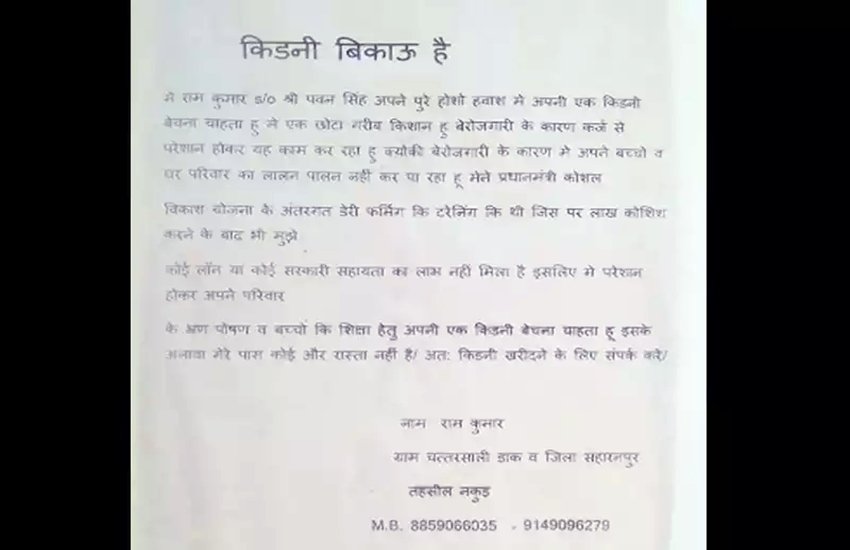 किडनी बिकाऊ है
मे राम कुमार s/o श्री पवन सिंह अपने पुरे होशो हवाश मे अपनी एक किडनी
बेचना चाहता हु मे एक छोटा गरीब किशान हु बेरोजगारी के कारण कर्ज से
परेशान होकर यह काम कर रहा हु क्योकी बेरोजगारी के कारण मे अपने बच्चो व
घर परिवार का लालन पालन नहीं कर पा रहा हू मेने प्रधानमंत्री कोशल
विकाश योजना के अंतरगत डेरी फर्मिंग कि टरेनिंग कि थी जिस पर लाख कोशिश
करने के बाद भी मुझे
कोई लॉन या कोई सरकारी सहायता का लाभ नहीं मिला है इसलिए मे परेशान
होकर अपने परिवार
के भ्रण पोषण व बच्चों कि शिक्षा हेतु अपनी एक किडनी बेचना चाहता हू इसके
अलावा मेरे पास कोई और रास्ता नहीं है/ अतः किडनी खरीदने के लिए संपर्क करे/
नाम राम कुमार
ग्राम चत्तरसाली डाक व जिला सहारनपुर
तहसील नकुड
M.B. 8859066035 - 9149096279